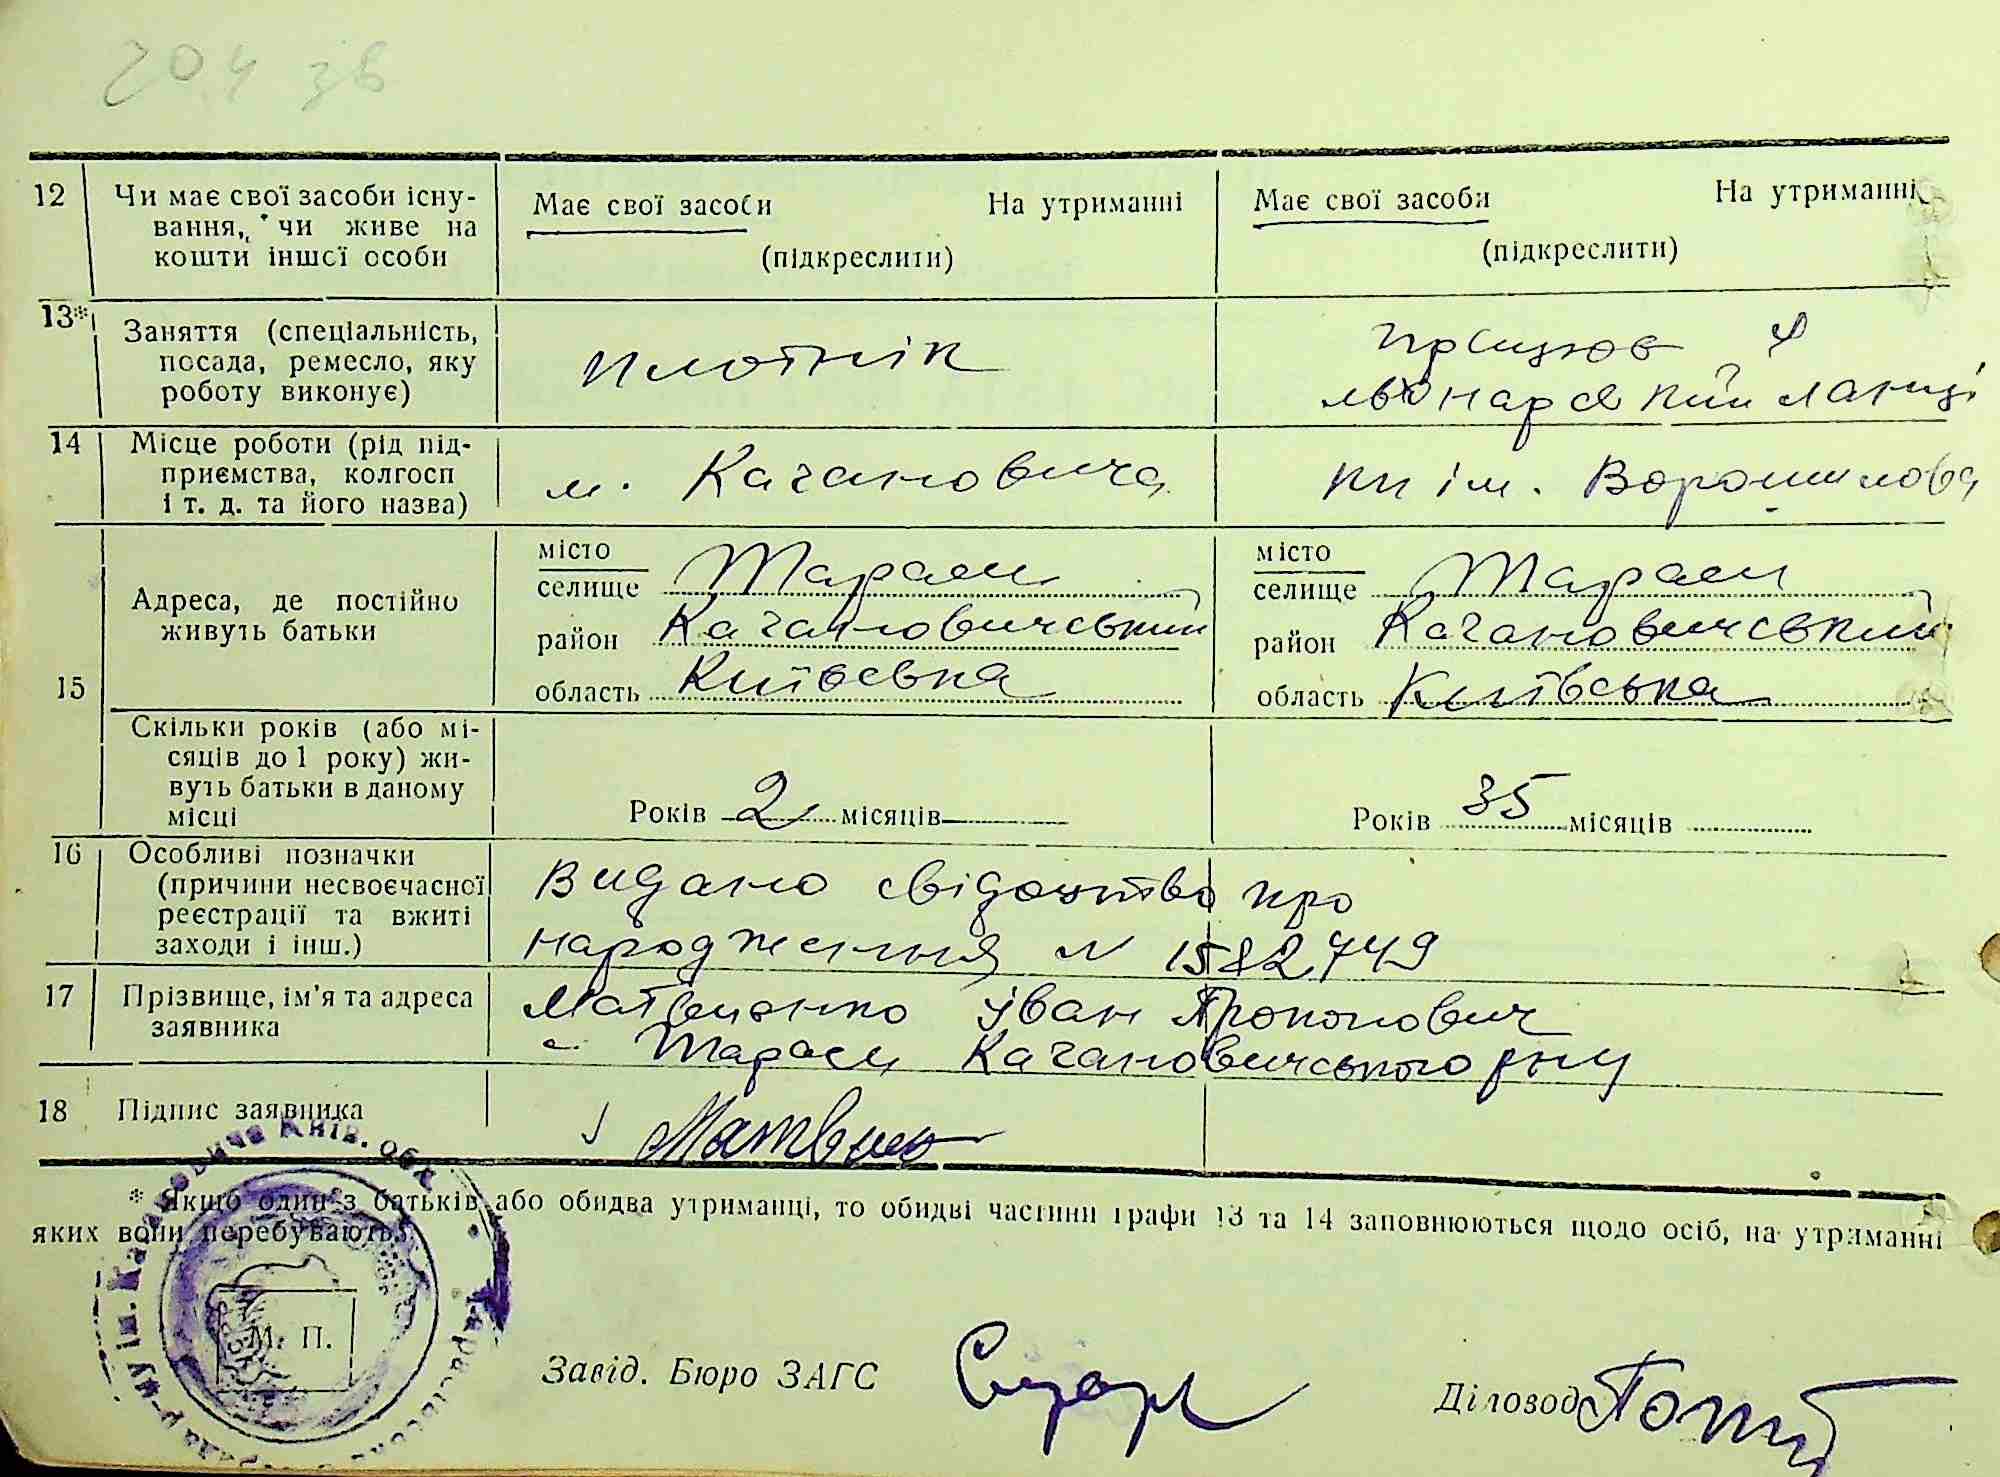 204 зв
12 Чи має свої засоби існу-
вання, чи живе на
кошти іншої особи
Має свої засоби На утриманні
(підкреслити)
Має свої засоби На утриманні
(підкреслити)
13* Заняття (спеціальність,
посада, ремесло, яку
роботу виконує)
плотнік
працює в
льонарській ланці
14 Місце роботи (рід під-
приємства, колгосп
і т. д. та його назва)
м. Кагановича
кп ім. Ворошилова
15 Адреса, де постійно
живуть батьки
місто
селище Тараси
район Кагановичський
область Київська
місто
селище Тараси
район Кагановичський
область Київська
Скільки років (або мі-
сяців до 1 року) жи-
вуть батьки в даному
місці
Років 2 місяців
Років 35 місяців
16 Особливі позначки
(причини несвоєчасної
реєстрації та вжиті
заходи і інш.)
Видано свідоцтво про
народження N 1582749
17 Прізвище, ім'я та адреса
заявника
Матвієнко Іван Прокопович
с. Тараси Кагановичського р-ну
18 Підпис заявника
* Якщо один з батьків або обидва утриманці, то обидві частини графи 13 та 14 заповнюються щодо осіб, на утриманні
яких вони перебувають.
М. П.
р-ну ім. Кагановича Київ. обл.
Завід. Бюро ЗАГС
Діловод